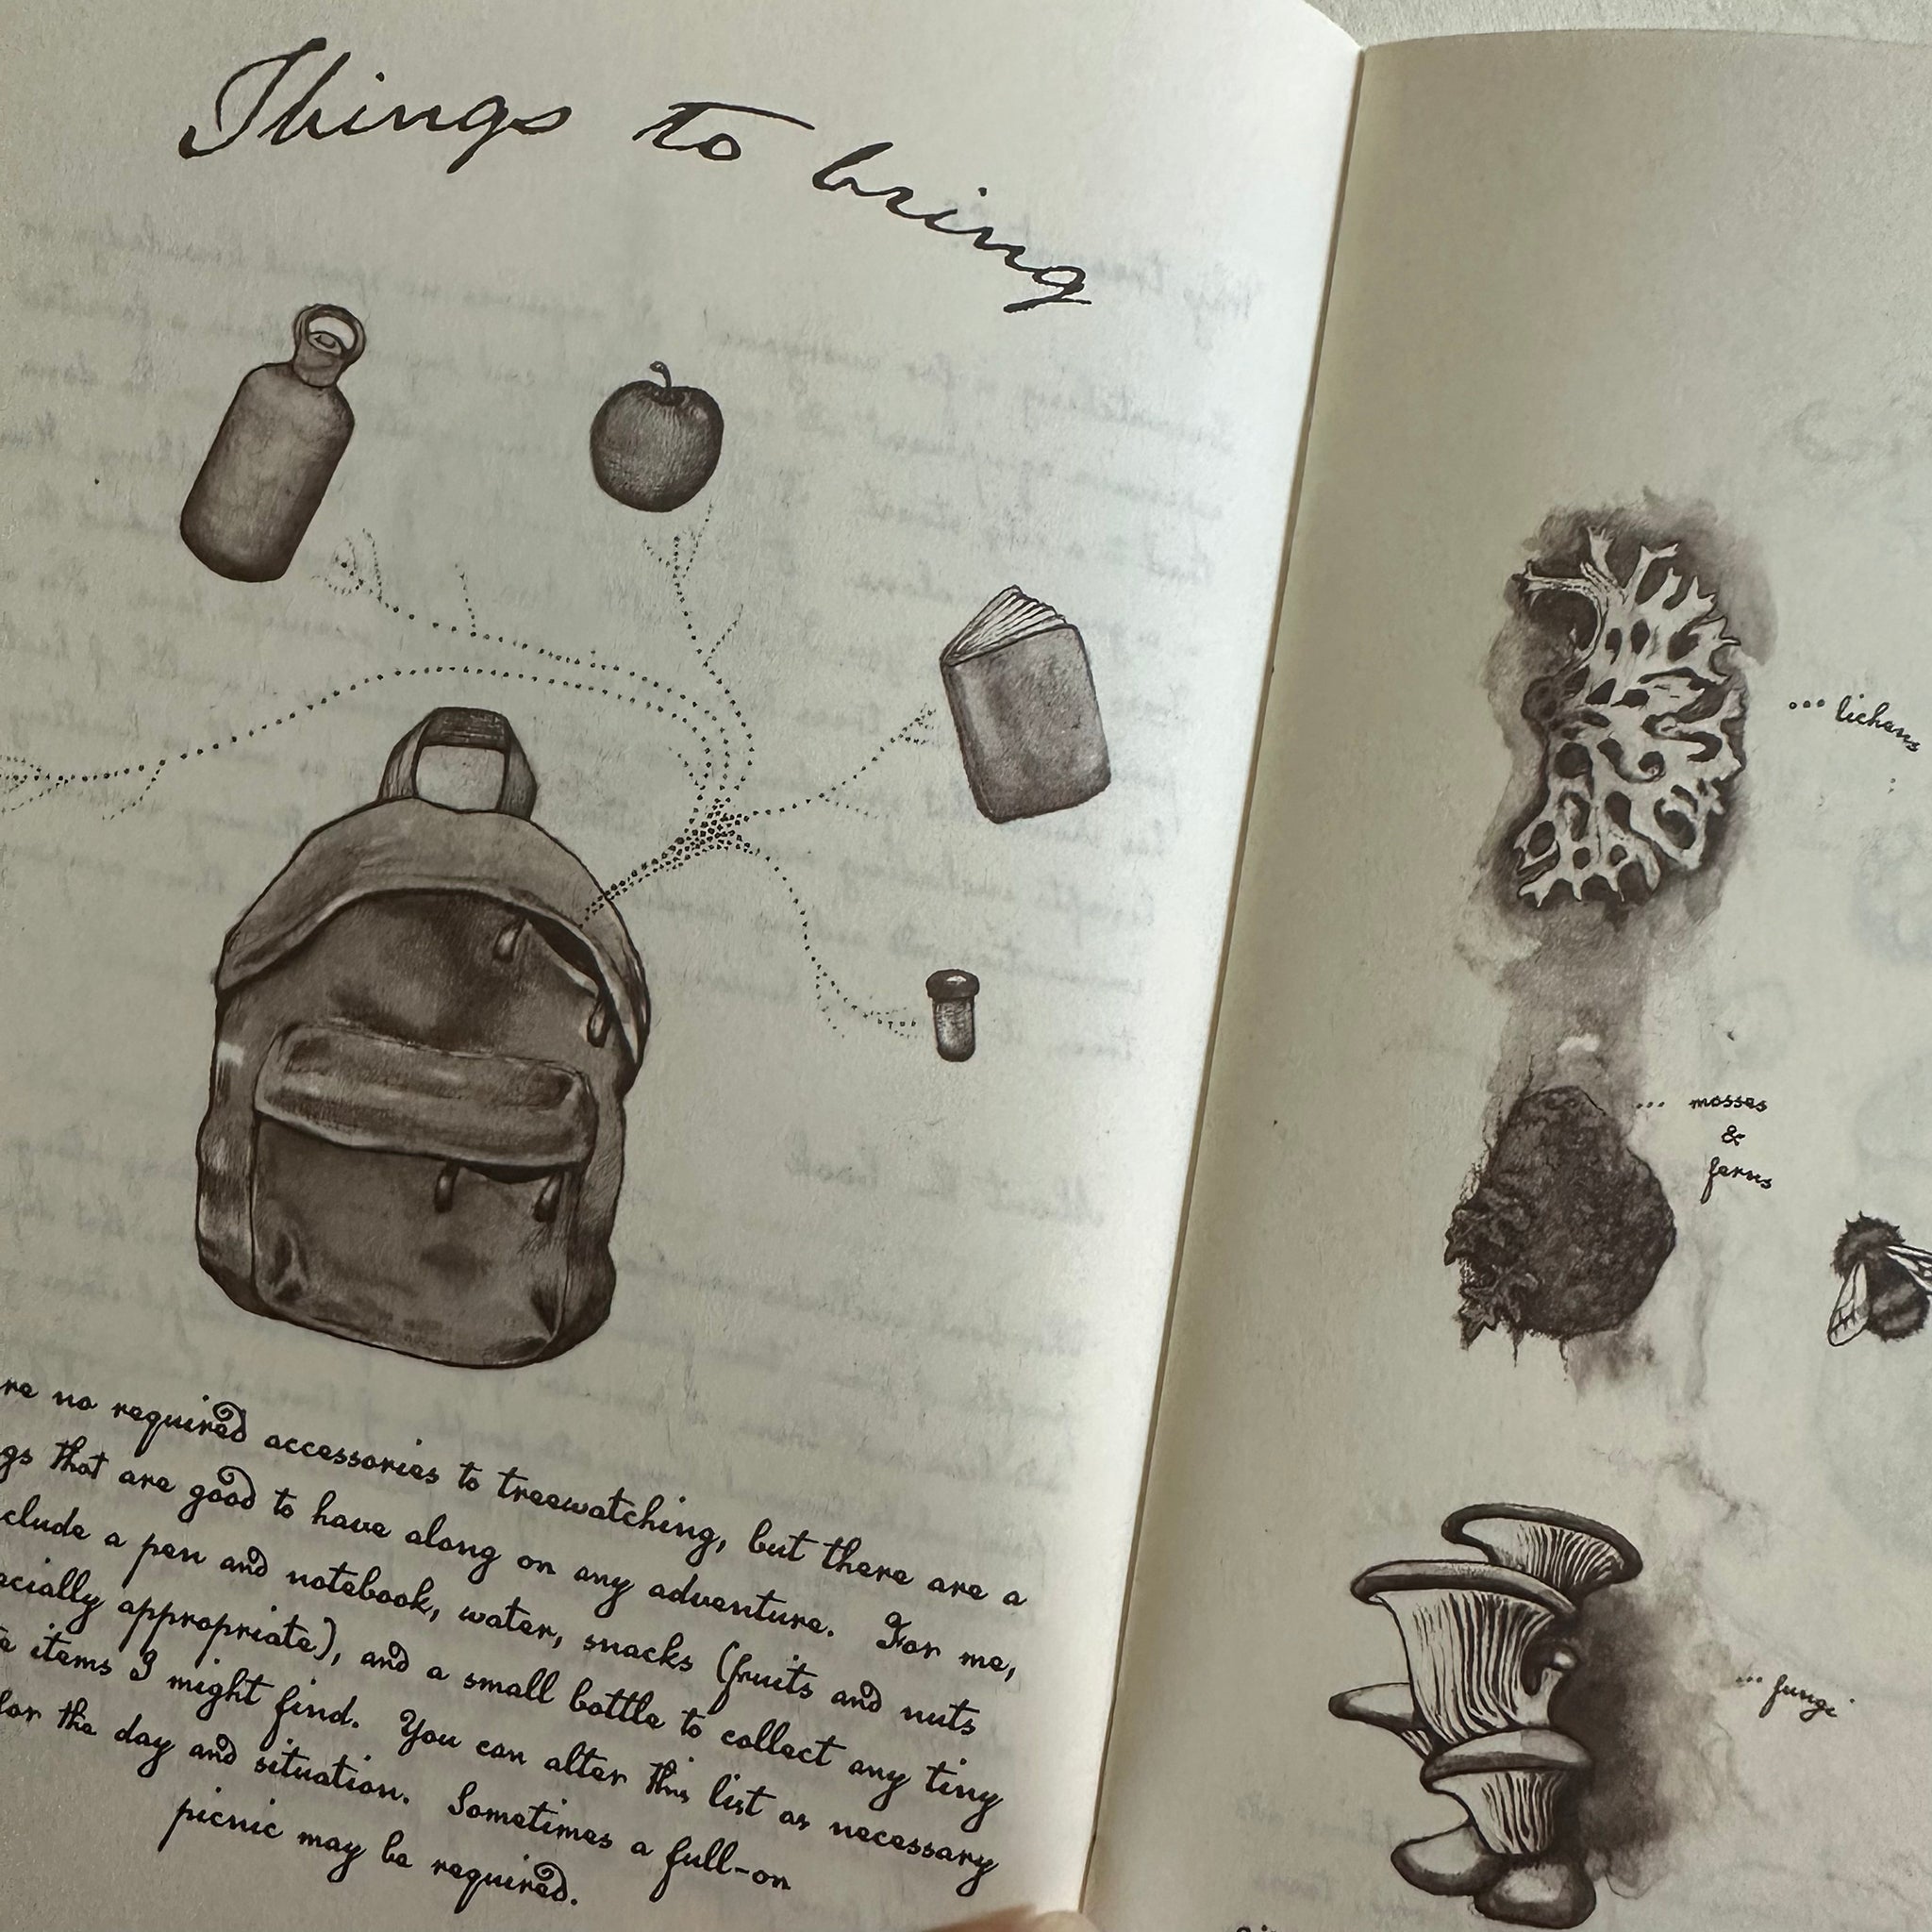 Things to bring
re no required accessories to treewatching, but there are a
gs that are good to have along on any adventure. For me,
clude a pen and notebook, water, snacks (fruits and nuts
ecially appropriate), and a small bottle to collect any tiny
e items I might find. You can alter this list as necessary
for the day and situation. Sometimes a full-on
picnic may be required.
... lichens
... mosses
&
ferns
... fungi